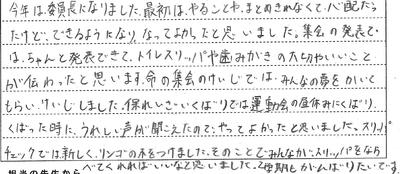 今年は委員長になりました。最初は、やることや、まとめきれなくて、心配だっ
たけど、できるようになり、なってよかったと思いました。集会の発表で
は、ちゃんと発表できて、トイレスリッパや歯みがきの大切さいいこと
が伝わったと思います。命の集会のけいじでは、みんなの夢をかいて
もらい、けいじしました。保れいざいくばりでは運動会の昼休みにくばり、
くばった時に、うれしい声が聞こえたので、やってよかったと思いました。スリッパ
チェックでは新しく、リンゴの木をつけました。そのことでみんながスリッパをなら
べてくれればいいなと思いました。2学期もがんばりたいです。
担当の先生から